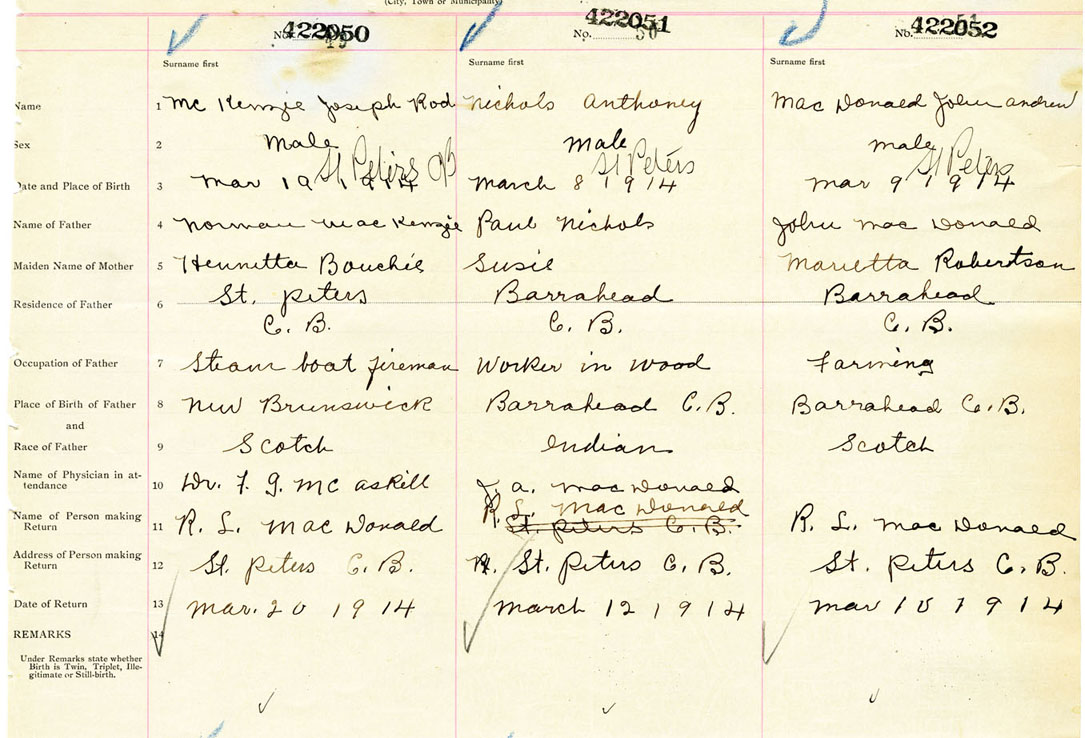 (City, Town or Municipality)
No. 422050 No. 50 422051 No. 51 422052
Surname first Surname first Surname first
Name 1 Mc Kenzie Joseph Rod Nichols Anthoney Mac Donald John andrew
Sex 2 male male male
St Peters CB St Peters St Peters
Date and Place of Birth 3 Mar 19 1914 March 8 1914 Mar 9 1914
Name of Father 4 Norman Mac Kenzie Paul Nichols John Mac Donald
Maiden Name of Mother 5 Hennetta Bouchie Susie Marietta Robertson
Residence of Father 6 St. Peters Barrahead Barrahead
C. B. C. B. C. B.
Occupation of Father 7 Steam boat fireman Worker in wood Farming
Place of Birth of Father 8 New Brunswick Barrahead C.B. Barrahead C.B.
and
Race of Father 9 Scotch Indian Scotch
Name of Physician in at-
tendance 10 Dr. F. G. Mc askill J. a. Mac Donald
R. L. Mac Donald
Name of Person making
Return 11 R. L. Mac Donald St. Peters C. B. R. L. Mac Donald
Address of Person making
Return 12 St. Peters C. B. St. Peters C. B. St. Peters C. B.
Date of Return 13 Mar. 20 1914 March 12 1914 Mar 10 1914
REMARKS 14
Under Remarks state whether
Birth is Twin, Triplet, Ille-
gitimate or Still-birth.